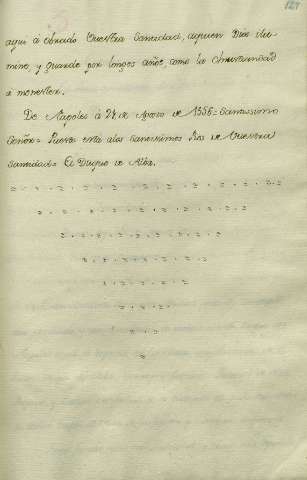 127
aqui á obrado Vuestra Santidad, aquien Dios ilu-
mine, y guarde por longos años, como la christiandad
á menester.
De Napoles á 21 de Agosto de 1556 = Santissimo
Señor = Puesto está alos Santissimos Pies de Vuestra
Santidad = El Duque de Alba.